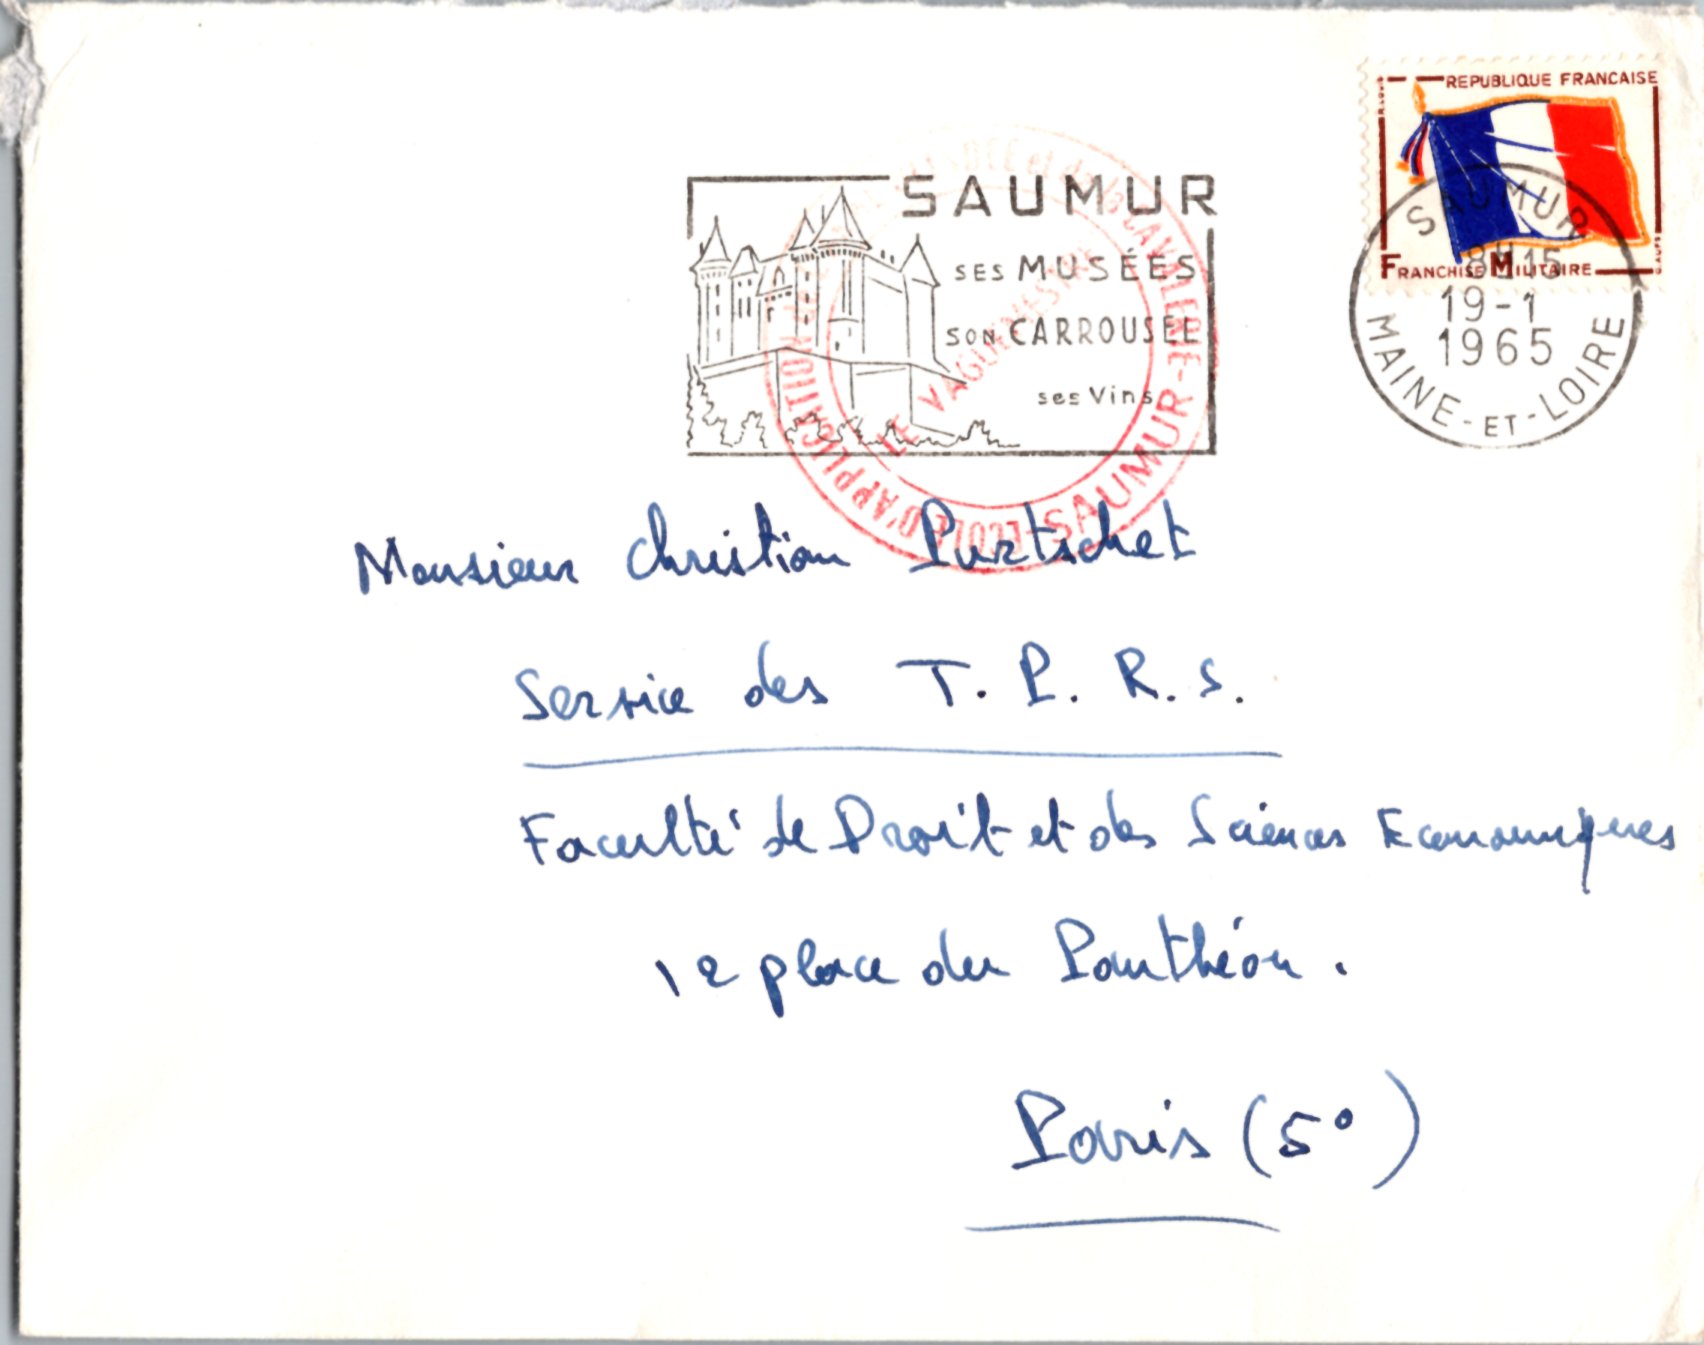 REPUBLIQUE FRANCAISE
FRANCHISE MILITAIRE
SAUMUR
19-1
1965
MAINE-ET-LOIRE
SAUMUR
SES MUSÉES
SON CARROUSEL
ses Vins
ECOLE D'APPLICATION et de la CAVALERIE - SAUMUR -
LE VAGUEMESTRE
Monsieur Christian Purtschet
Service des T. P. R. S.
Faculté de Droit et des Sciences Economiques
12 place du Panthéon.
Paris (5°)